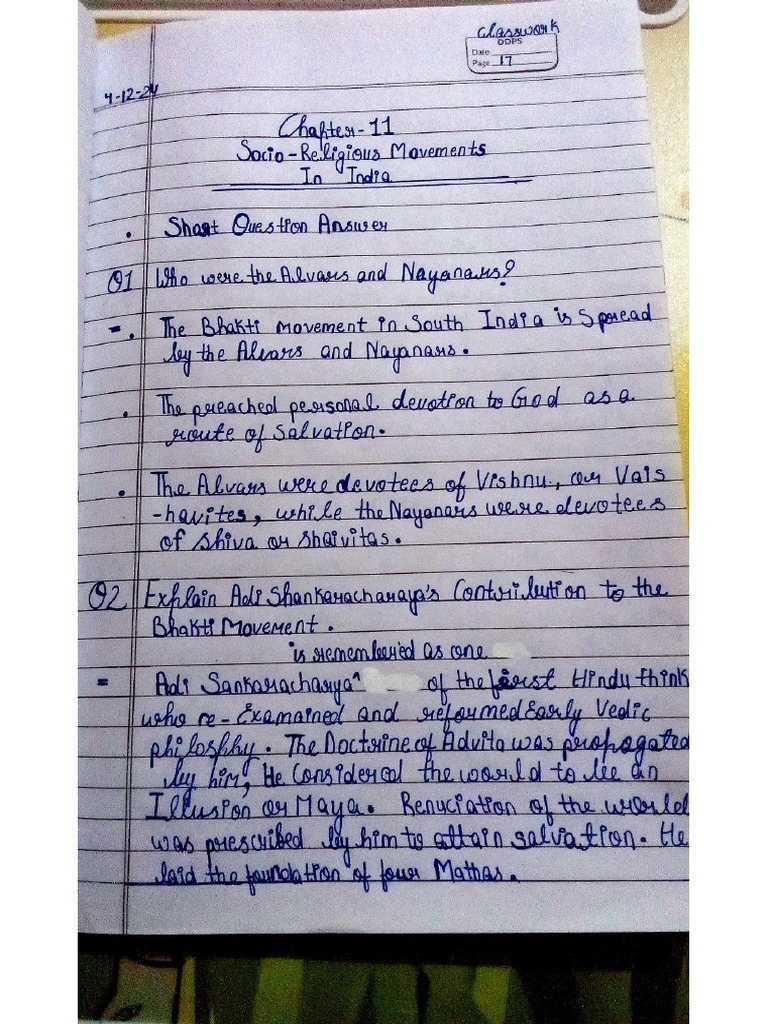 Classwork
DDPS
Date
Page 17
4-12-24
Chapter-11
Socio-Religious Movements
In India
• Short Question Answer
Q1 Who were the Alvars and Nayanars?
- • The Bhakti movement in South India is Spread
by the Alvars and Nayanars.
• The preached personal devotion to God as a
route of Salvation.
• The Alvars were devotees of Vishnu, or Vais
-havites, while the Nayanars were devotees
of Shiva or Shaivitas.
Q2 Explain Adi Shankaracharaya's Contribution to the
Bhakti Movement.
is remembered as one
= Adi Sankaracharya^ of the first Hindu think
who re-Examained and reformed Early Vedic
philosphy. The Doctrine of Advita was propogated
by him, He Considered the world to be an
Illusion or Maya. Renuciation of the world
was prescribed by him to attain salvation. He
laid the foundation of four Mathas.